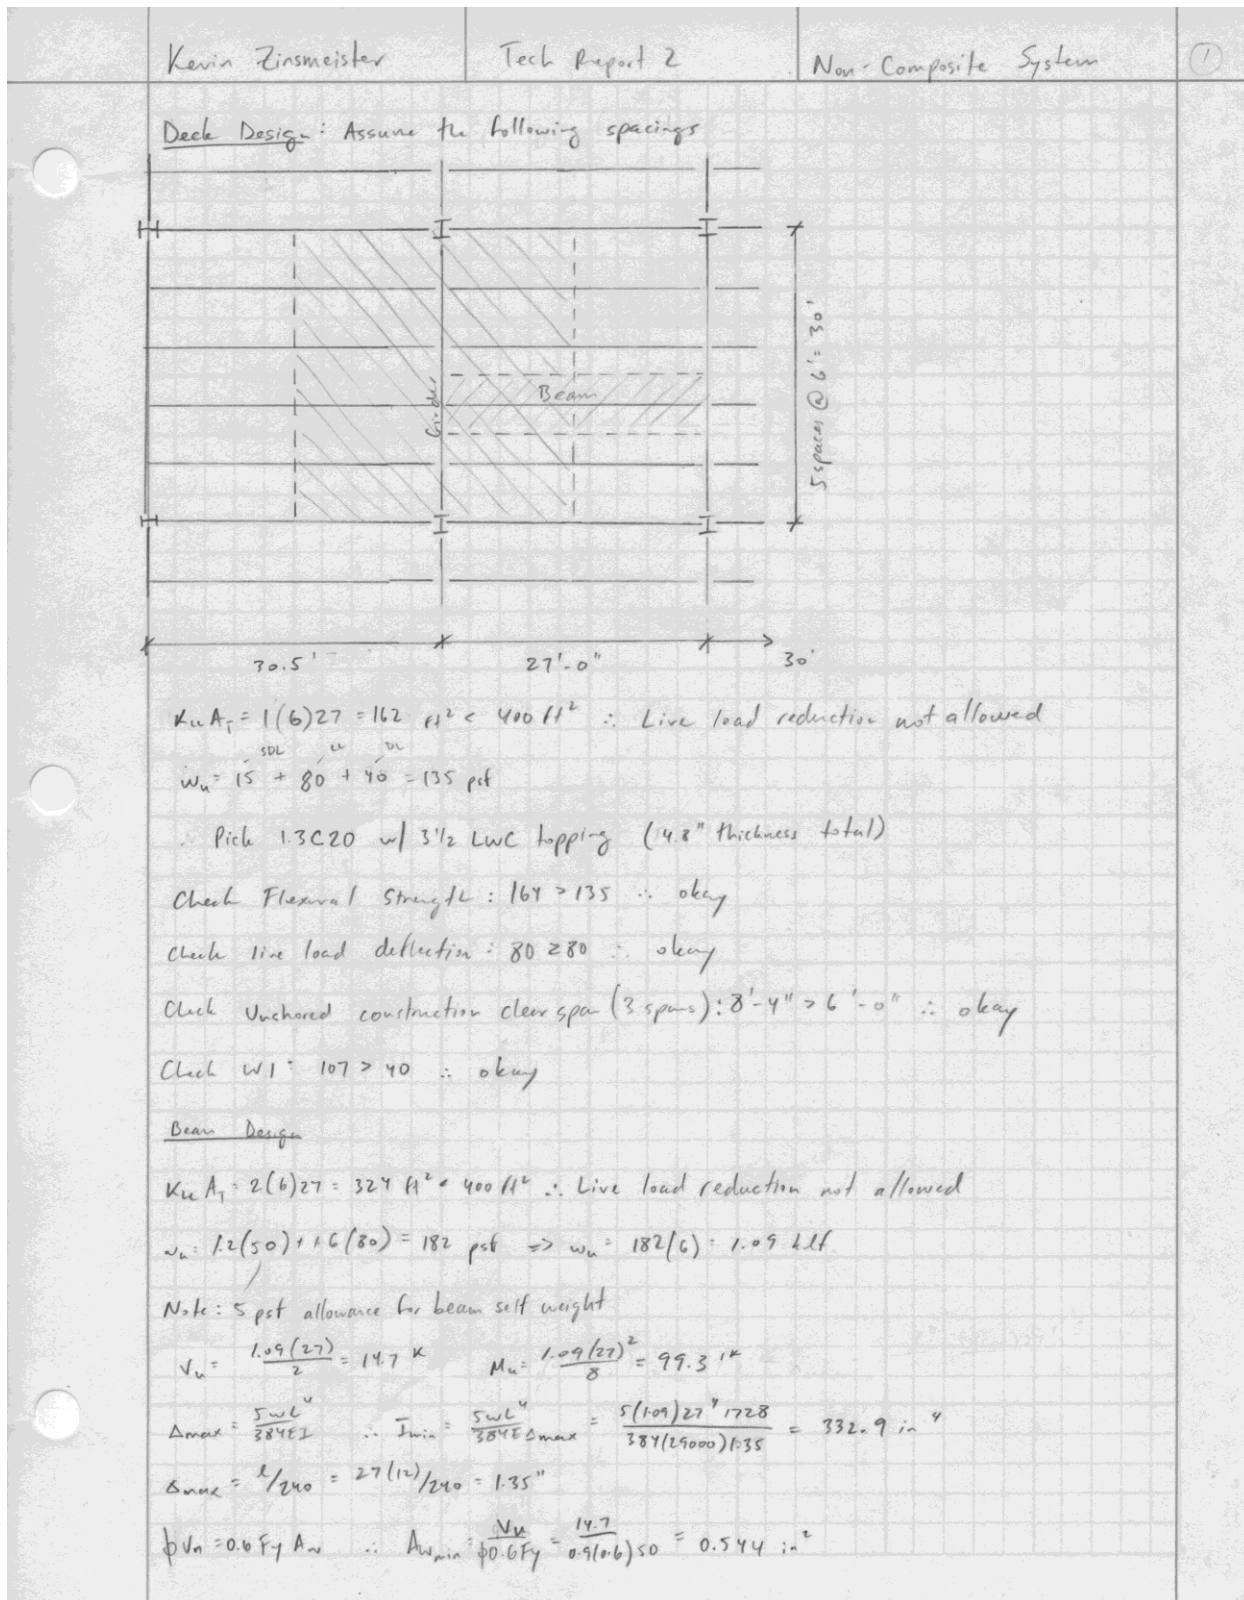 Kevin Zinsmeister
Tech Report 2
Non-Composite System
1
Deck Design: Assume the following spacings
Girder
Beam
5 spaces @ 6' = 30'
30.5'
27'-0"
30'
KLL AT = 1(6)27 = 162 ft² < 400 ft² ∴ Live load reduction not allowed
SDL LL DL
wu = 15 + 80 + 40 = 135 psf
∴ Pick 1.3C20 w/ 3 1/2 LWC topping (4.8" thickness total)
Check Flexural Strength: 164 > 135 ∴ okay
Check live load deflection: 80 ≥ 80 ∴ okay
Check Unshored construction clear span (3 spans): 8'-4" > 6'-0" ∴ okay
Check W1: 107 > 40 ∴ okay
Beam Design
KLL AT = 2(6)27 = 324 ft² < 400 ft² ∴ Live load reduction not allowed
wu = 1.2(50) + 1.6(80) = 182 psf => wu = 182(6) = 1.09 klf
Note: 5 psf allowance for beam self weight
Vu = 1.09(27)/2 = 14.7 k Mu = 1.09(27)²/8 = 99.3 'k
Δmax = 5wL⁴/384EI ∴ Imin = 5wL⁴/384EΔmax = 5(1.09)27⁴ 1728/384(29000)1.35 = 332.9 in⁴
Δmax = l/240 = 27(12)/240 = 1.35"
φVn = 0.6 Fy Aw ∴ Aw min = Vu/φ0.6Fy = 14.7/0.9(0.6)50 = 0.544 in²